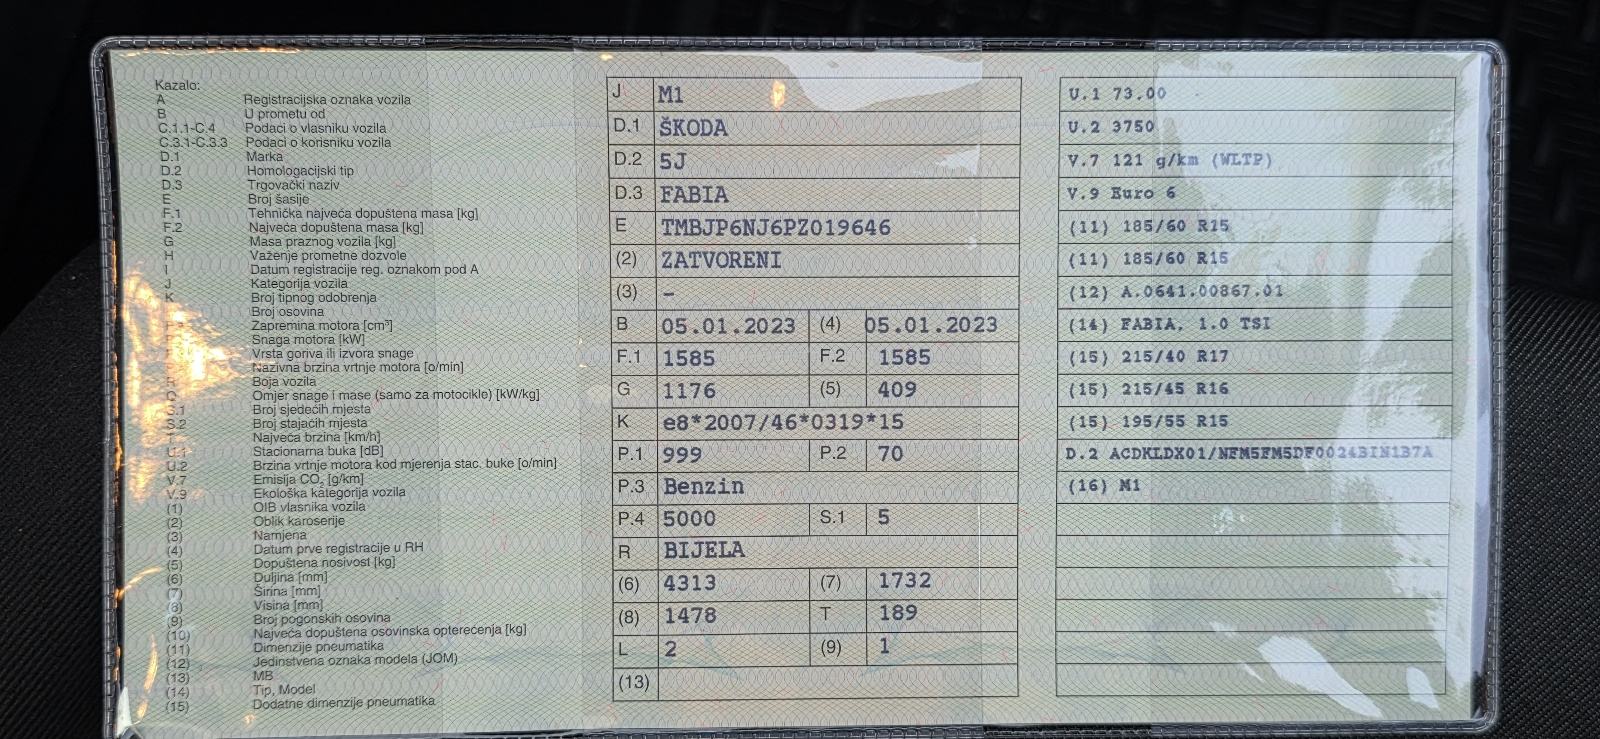 Kazalo:
A Registracijska oznaka vozila
B U prometu od
C.1.1-C.4 Podaci o vlasniku vozila
C.3.1-C.3.3 Podaci o korisniku vozila
D.1 Marka
D.2 Homologacijski tip
D.3 Trgovački naziv
E Broj šasije
F.1 Tehnička najveća dopuštena masa [kg]
F.2 Najveća dopuštena masa [kg]
G Masa praznog vozila [kg]
H Važenje prometne dozvole
I Datum registracije reg. oznakom pod A
J Kategorija vozila
K Broj tipnog odobrenja
Broj osovina
Zapremina motora [cm³]
Snaga motora [kW]
Vrsta goriva ili izvora snage
Nazivna brzina vrtnje motora [o/min]
R Boja vozila
Q Omjer snage i mase (samo za motocikle) [kW/kg]
S.1 Broj sjedećih mjesta
S.2 Broj stajaćih mjesta
T Najveća brzina [km/h]
U.1 Stacionarna buka [dB]
U.2 Brzina vrtnje motora kod mjerenja stac. buke [o/min]
V.7 Emisija CO₂ [g/km]
V.9 Ekološka kategorija vozila
(1) OIB vlasnika vozila
(2) Oblik karoserije
(3) Namjena
(4) Datum prve registracije u RH
(5) Dopuštena nosivost [kg]
(6) Duljina [mm]
(7) Širina [mm]
(8) Visina [mm]
(9) Broj pogonskih osovina
(10) Najveća dopuštena osovinska opterećenja [kg]
(11) Dimenzije pneumatika
(12) Jedinstvena oznaka modela (JOM)
(13) MB
(14) Tip, Model
(15) Dodatne dimenzije pneumatika
J M1
D.1 ŠKODA
D.2 5J
D.3 FABIA
E TMBJP6NJ6PZ019646
(2) ZATVORENI
(3) –
B 05.01.2023 (4) 05.01.2023
F.1 1585 F.2 1585
G 1176 (5) 409
K e8*2007/46*0319*15
P.1 999 P.2 70
P.3 Benzin
P.4 5000 S.1 5
R BIJELA
(6) 4313 (7) 1732
(8) 1478 T 189
L 2 (9) 1
(13)
U.1 73.00
U.2 3750
V.7 121 g/km (WLTP)
V.9 Euro 6
(11) 185/60 R15
(11) 185/60 R15
(12) A.0641.00867.01
(14) FABIA, 1.0 TSI
(15) 215/40 R17
(15) 215/45 R16
(15) 195/55 R15
D.2 ACDKLDX01/NFM5FM5DF0024BIN1B7A
(16) M1